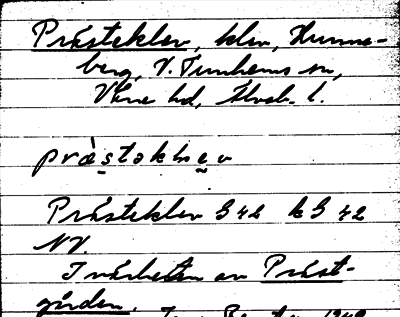 Prästeklev, klev, Hunne-
berg, V. Tunhems sn,
Väne hd, Älvsb. l.
prästəkle̬v
Prästeklev G42 kG 42
NV.
I närheten av Präst-
gården.